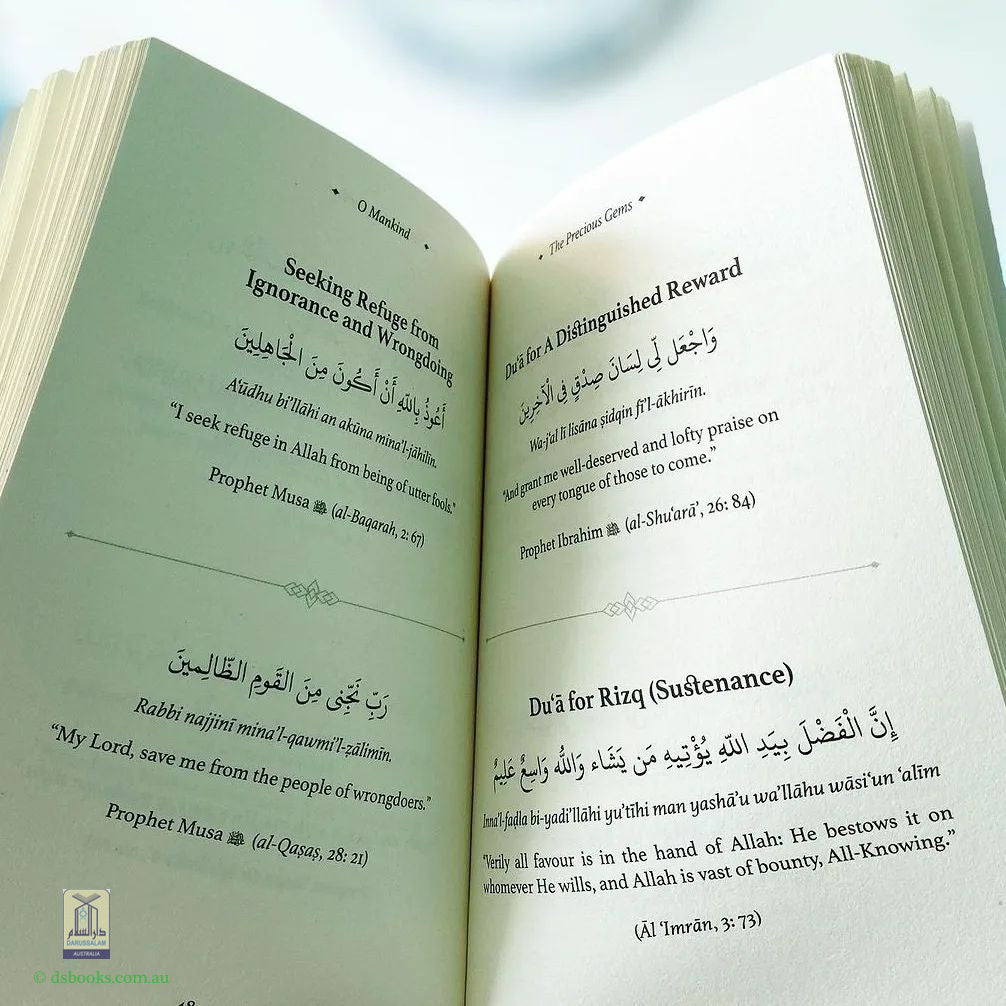 O Mankind
Seeking Refuge from
Ignorance and Wrongdoing
أَعُوذُ بِاللّٰهِ أَنْ أَكُونَ مِنَ الْجَاهِلِينَ
A‘ūdhu bi’llāhi an akūna mina’l-jāhilīn.
“I seek refuge in Allah from being of utter fools.”
Prophet Musa (al-Baqarah, 2: 67)
رَبِّ نَجِّنِى مِنَ القَومِ الظَّالِمينَ
Rabbi najjinī mina’l-qawmi’l-ẓālimīn.
“My Lord, save me from the people of wrongdoers.”
Prophet Musa (al-Qaṣaṣ, 28: 21)
The Precious Gems
Du‘ā for A Distinguished Reward
وَاجْعَل لِّى لِسَانَ صِدْقٍ فِى الْآخِرِينَ
Wa-j‘al lī lisāna ṣidqin fī’l-ākhirīn.
“And grant me well-deserved and lofty praise on
every tongue of those to come.”
Prophet Ibrahim (al-Shu‘arā’, 26: 84)
Du‘ā for Rizq (Sustenance)
إِنَّ الْفَضْلَ بِيَدِ اللّٰهِ يُؤْتِيهِ مَن يَشَاء وَاللّٰهُ وَاسِعٌ عَلِيمٌ
Inna’l-faḍla bi-yadi’llāhi yu’tīhi man yashā’u wa’llāhu wāsi‘un ‘alīm
“Verily all favour is in the hand of Allah: He bestows it on
whomever He wills, and Allah is vast of bounty, All-Knowing.”
(Āl ‘Imrān, 3: 73)
دارالسلام
DARUSSALAM
AUSTRALIA
© dsbooks.com.au